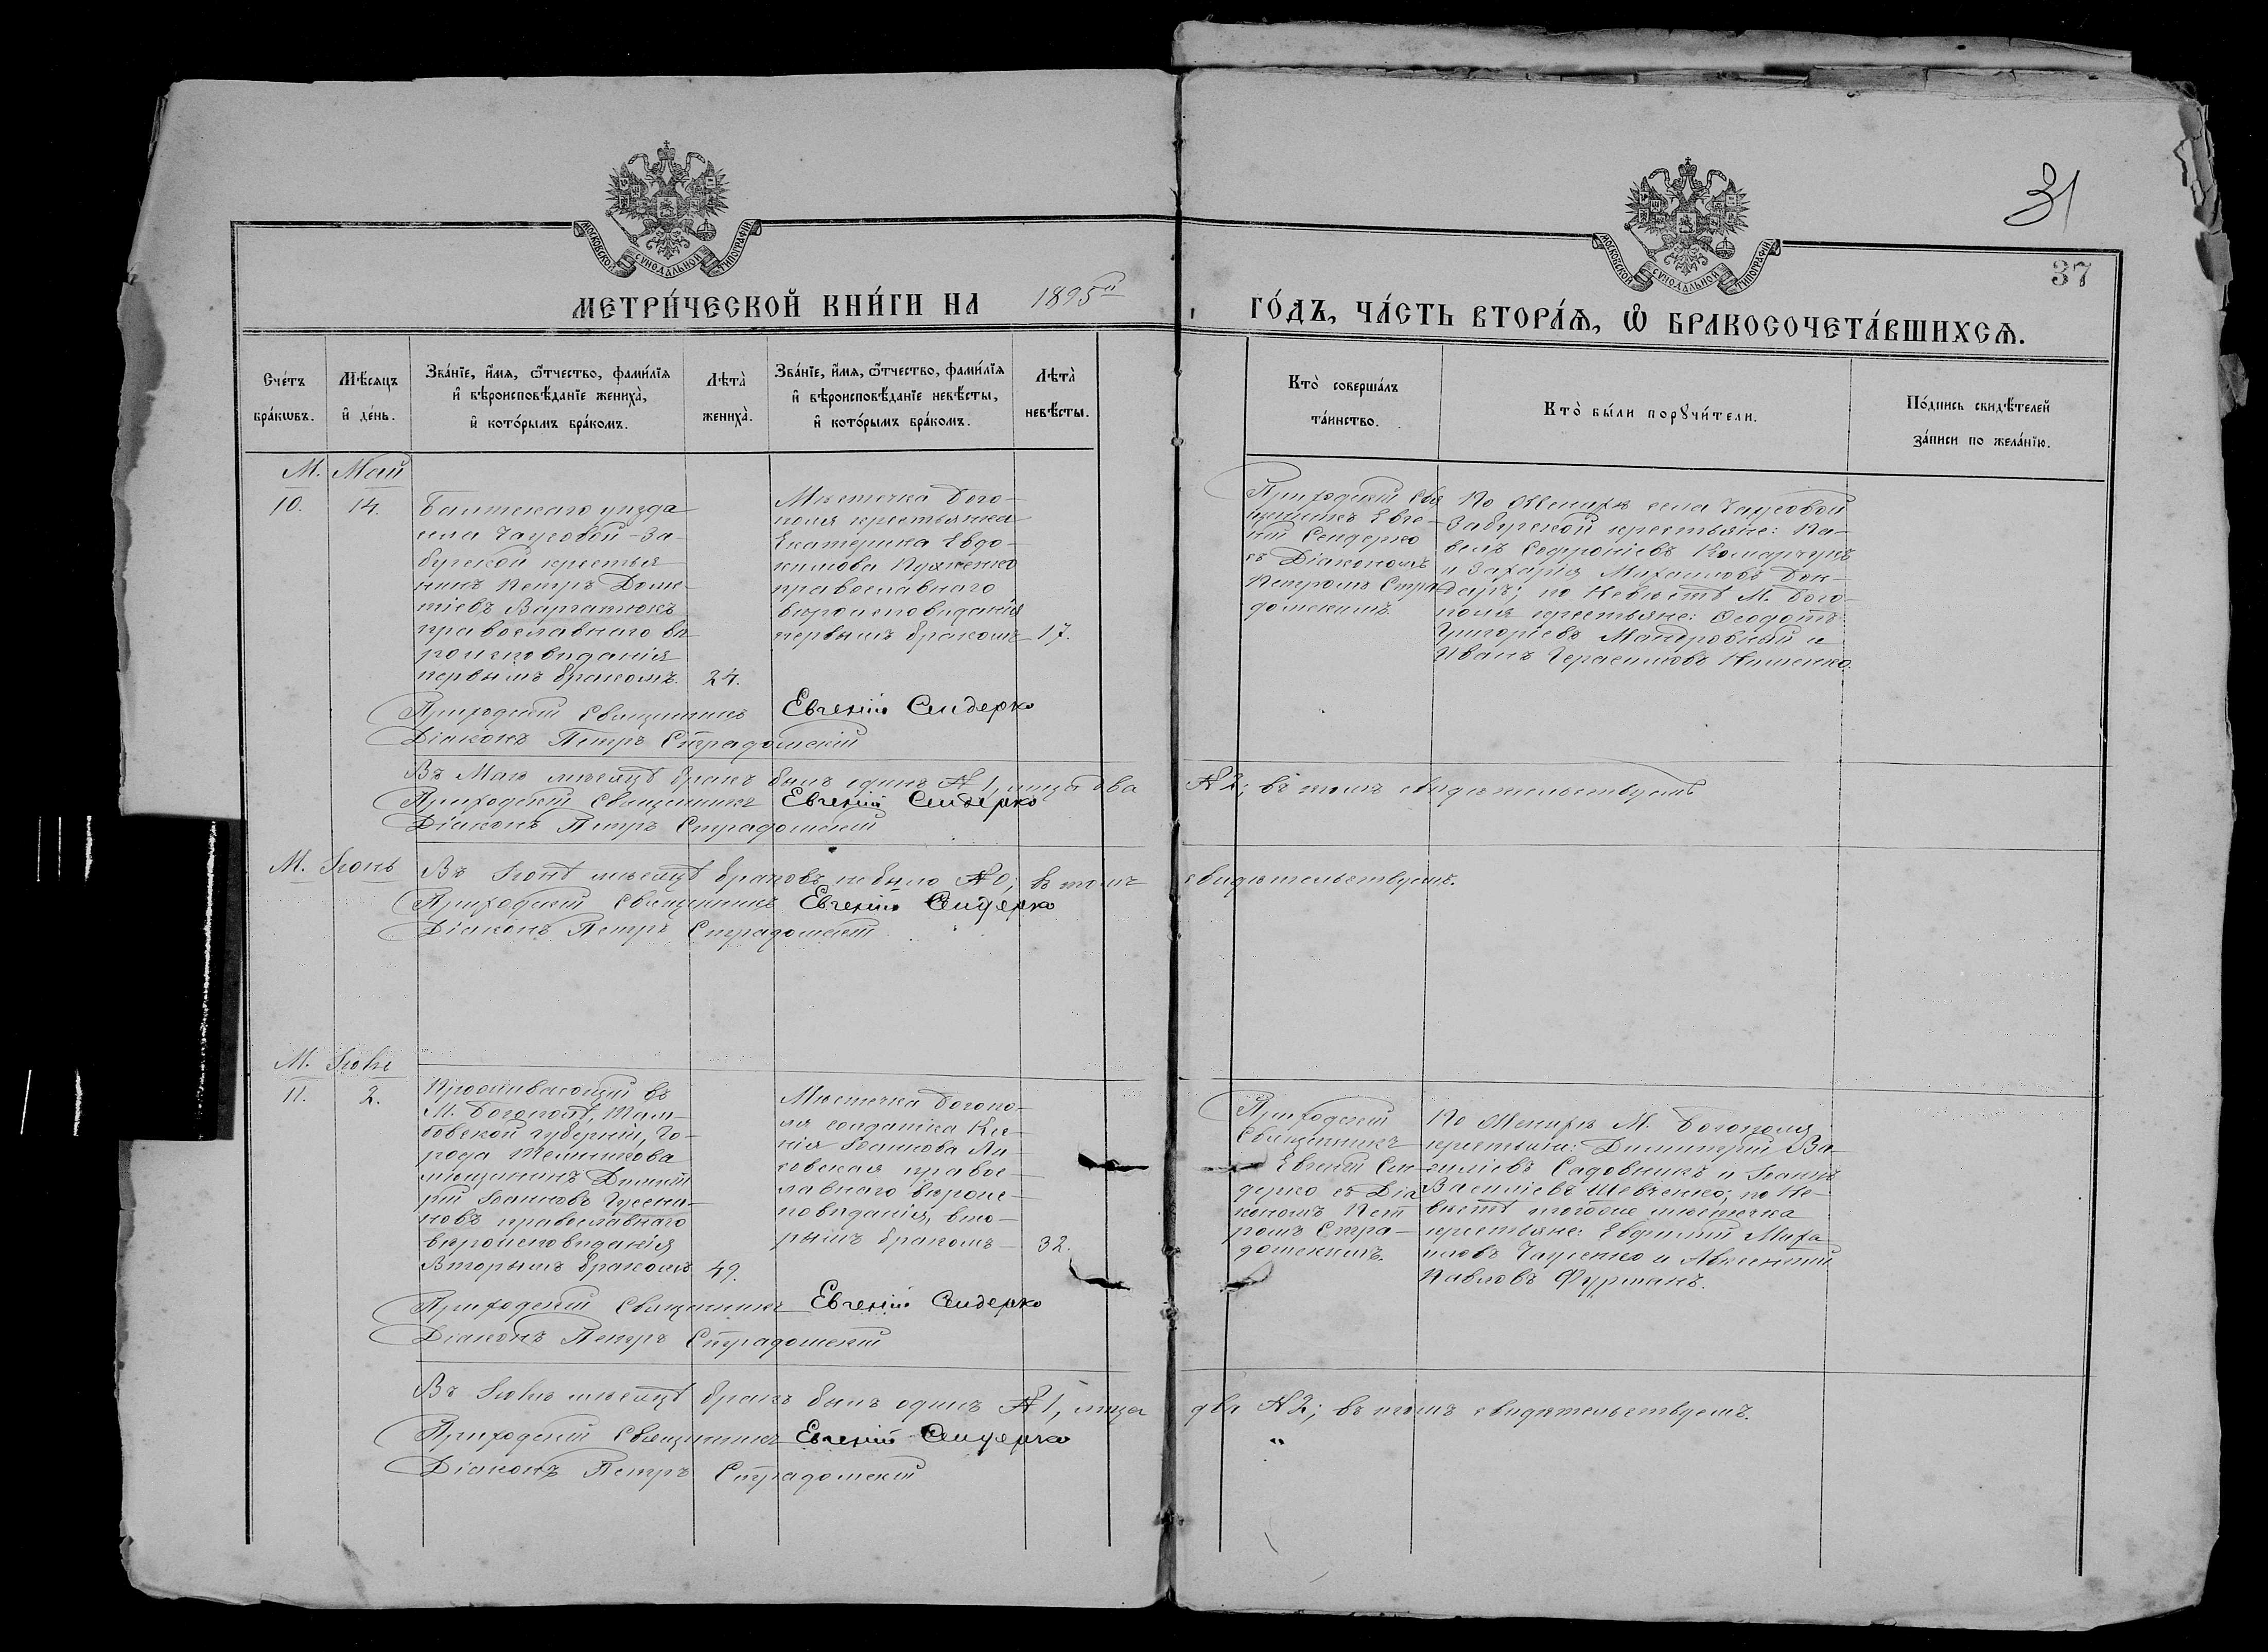 31
37
МОСКОВСКОЙ СУНОДАЛЬНОЙ ТИПОГРАФІИ
МОСКОВСКОЙ СУНОДАЛЬНОЙ ТИПОГРАФІИ
МЕТРИ́ЧЕСКОЙ КНИ́ГИ НА 1895й
ГО́ДЪ, ЧА́СТЬ ВТОРА́Ѧ, Ѡ҆ БРАКОСОЧЕТА́ВШИХСѦ.
Сче́тъ бра́кѡвъ.
Мѣ́сѧцъ и҆ де́нь.
Зва́нїе, и҆́мѧ, ѻ҆́тчество, фами́лїѧ и҆ вѣроисповѣ́данїе жениха̀, и҆ кото́рымъ бра́комъ.
Лѣта̀ жениха̀.
Зва́нїе, и҆́мѧ, ѻ҆́тчество, фами́лїѧ и҆ вѣроисповѣ́данїе невѣ́сты, и҆ кото́рымъ бра́комъ.
Лѣта̀ невѣ́сты.
Кто̀ соверша́лъ та́инство.
Кто̀ бы́ли порꙋчи́тели.
По́дпись свидѣ́телей за́писи по жела́нїю.
М. Май
10.
14.
Балтскаго уѣзда
села Чаусовой-За-
бугской крестья
нинъ Петръ Доме-
тіевъ Варатнюкъ
православнаго вѣ
роисповѣданія
первымъ бракомъ.
24.
Мѣстечка Бого-
поля крестьянка
Екатерина Евдо-
кимова
православнаго
вѣроисповѣданія
первымъ бракомъ
17.
Приходскій Свя
щенникъ Евге-
ній Сендерко
съ Діакономъ
Петромъ Стра-
домскимъ.
По Женихѣ села Чаусовой
Забугской крестьяне: Па-
велъ Софроніевъ Комарчукъ
и Захарія Михаиловъ Бон-
даръ; по Невѣстѣ М. Бого-
поля крестьяне: Ѳеодотъ
Григоріевъ Мандровный и
Иванъ Герасимовъ
Приходскій Священникъ Евгеній Сендерко
Діаконъ Петръ Страдомскій
Въ Маѣ мѣсяцѣ бракъ былъ одинъ № 1, лица два № 2; въ томъ свидѣтельствуемъ
Приходскій Священникъ Евгеній Сендерко
Діаконъ Петръ Страдомскій
М. Іюнь
Въ Іюнѣ мѣсяцѣ браковъ не было № 0; въ томъ свидѣтельствуемъ.
Приходскій Священникъ Евгеній Сендерко
Діаконъ Петръ Страдомскій
М. Іюль
11.
2.
Проживающій въ
М. Богополѣ, Там-
бовской губерніи, го-
рода Темникова
мѣщанинъ Димит
рій Іоанновъ
православнаго
вѣроисповѣданія
Вторымъ бракомъ
49.
Мѣстечка Богопо-
ля солдатка Ксе-
нія Іоаннова Ли-
совская правос-
лавнаго вѣроис-
повѣданія, вто-
рымъ бракомъ
32.
Приходскій
Священникъ
Евгеній Сен-
дерко съ Діа
кономъ Пет
ромъ Стра-
домскимъ.
По Женихѣ М. Богополя
крестьяне: Димитрій Ва-
силіевъ Садовникъ и Іоаннъ
Василіевъ Шевченко; по Не-
вѣстѣ тогоже мѣстечка
крестьяне: Евфимій Миха
иловъ Чаусенко и Авксентій
Павловъ Фурманъ.
Приходскій Священникъ Евгеній Сендерко
Діаконъ Петръ Страдомскій
Въ Іюлѣ мѣсяцѣ бракъ былъ одинъ № 1, лица два № 2; въ томъ свидѣтельствуемъ.
Приходскій Священникъ Евгеній Сендерко
Діаконъ Петръ Страдомскій